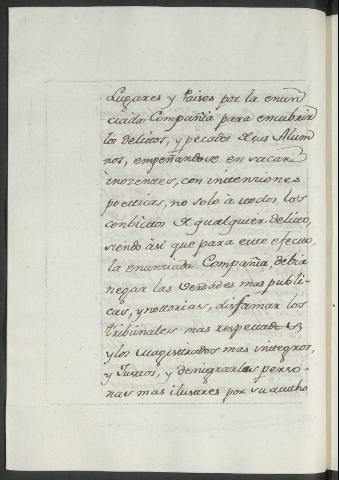 Lugares y Paises por la enun
ciada Compañia para encubrir
los delitos, y pecados de sus Alum
nos, empeñandose en sacar
inozentes, con invenciones
poeticas, no solo à todos los
conbictos de qualquier delito,
siendo àsi que para este efecto,
la enunciada Compañia, debia
negar las verdades mas publi-
cas, y nottorias, disfamar los
tribunales mas respectados,
y los magistrados mas integros,
y Justos, y denigrar las perso-
nas mas ilustres por su autho